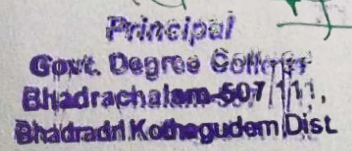 Principal
Govt. Degree College
Bhadrachalam-507 111,
Bhadradri Kothagudem Dist